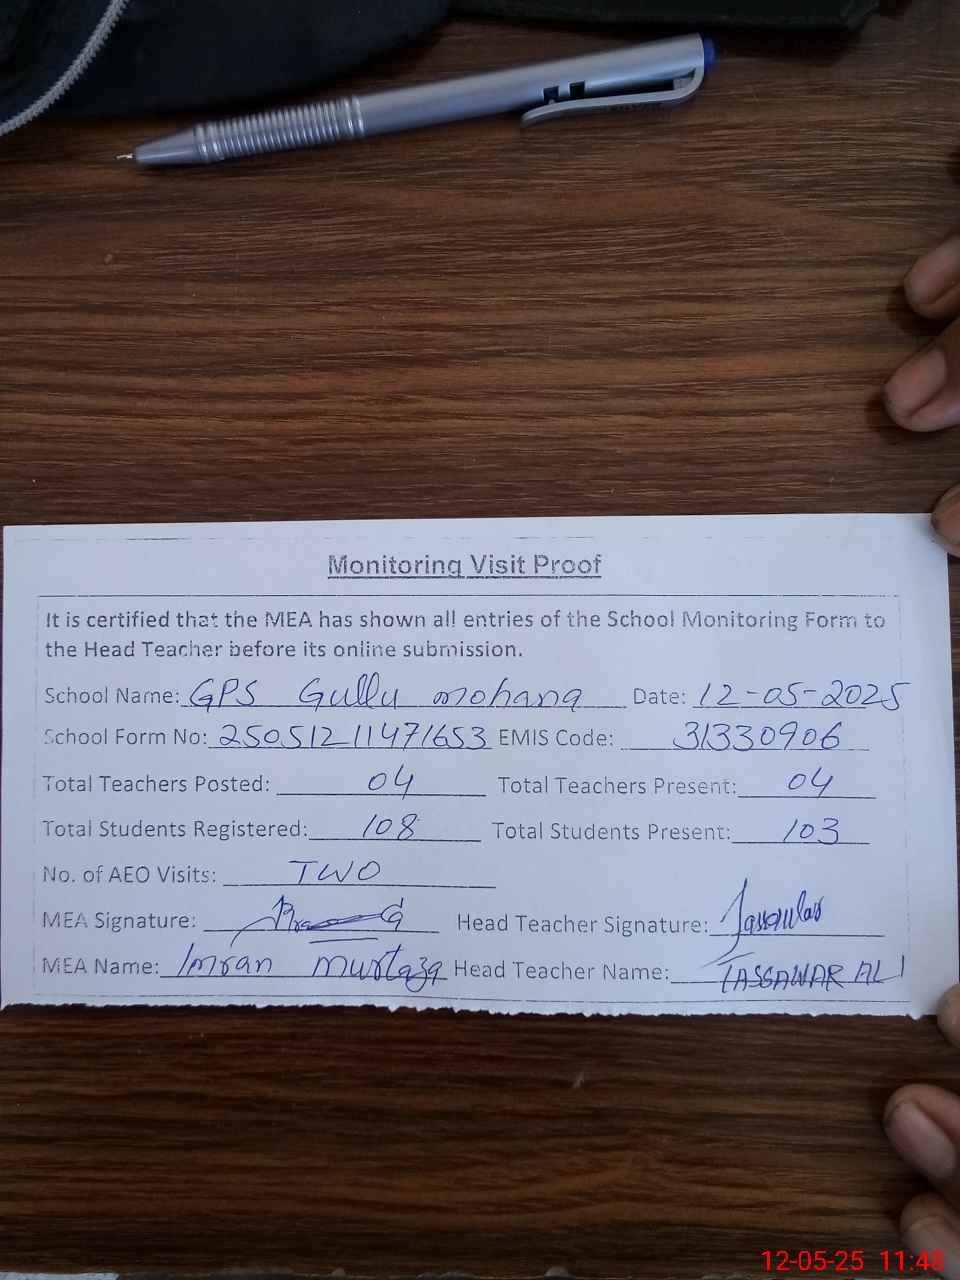 Monitoring Visit Proof
It is certified that the MEA has shown all entries of the School Monitoring Form to
the Head Teacher before its online submission.
School Name: GPS Gullu mohana Date: 12-05-2025
School Form No: 25051211471653 EMIS Code: 31330906
Total Teachers Posted: 04 Total Teachers Present: 04
Total Students Registered: 108 Total Students Present: 103
No. of AEO Visits: TWO
MEA Signature: Head Teacher Signature:
MEA Name: Imran murtaza Head Teacher Name: TASSAWAR ALI
12-05-25 11:48